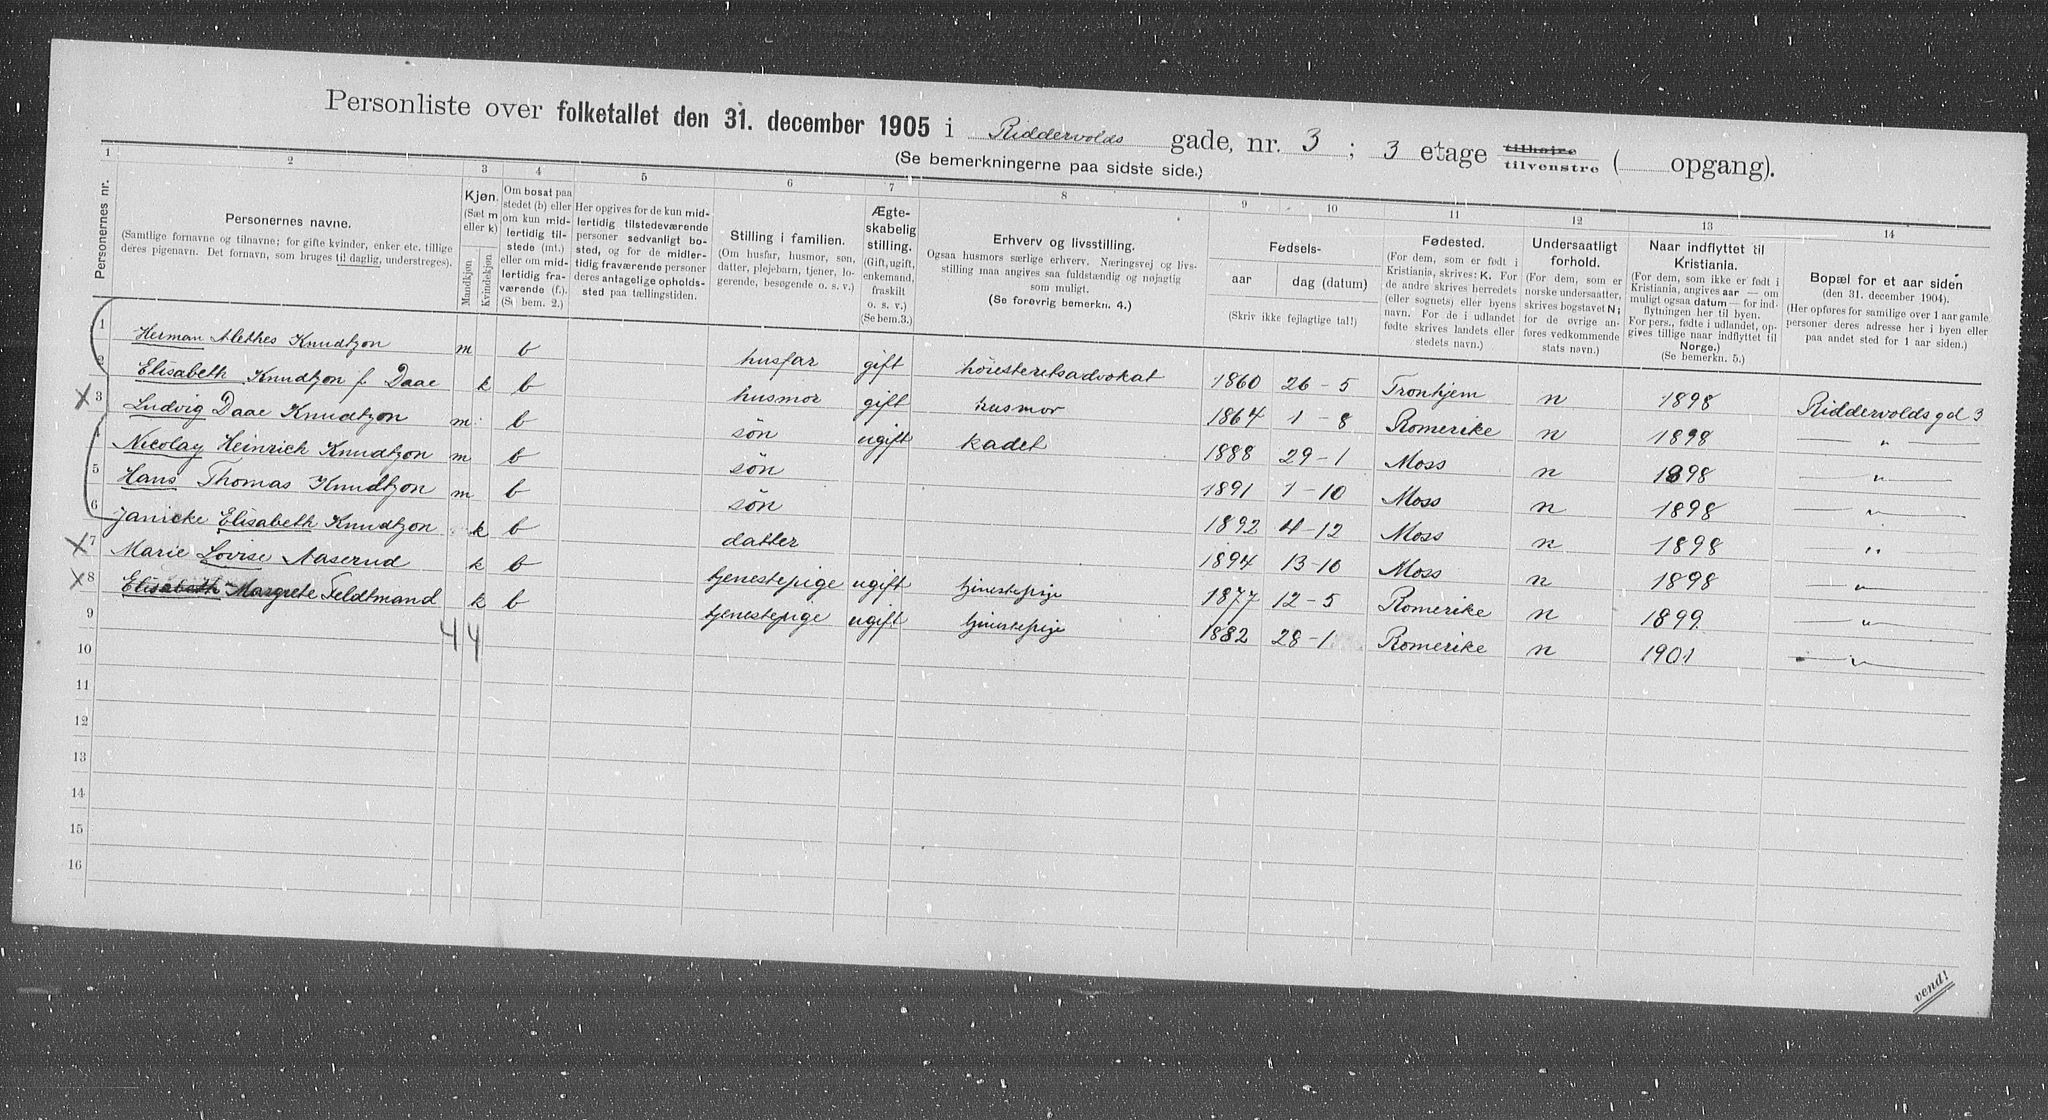 Personliste over folketallet den 31. december 1905 i Riddervolds gade, nr. 3 ; 3 etage tilhøire tilvenstre ( opgang).
(Se bemerkningerne paa sidste side.)
1 2 3 4 5 6 7 8 9 10 11 12 13 14
Personernes nr.
Personernes navne.
(Samtlige fornavne og tilnavne; for gifte kvinder, enker etc. tillige
deres pigenavn. Det fornavn, som bruges til daglig, understreges).
Kjøn.
(Sæt m
eller k)
Mandkjøn
Kvindekjøn.
Om bosat paa
stedet (b) eller
om kun mid-
lertidig til-
stede (mt.)
eller om mid-
lertidig fra-
værende (f.).
(Se bem. 2.)
Her opgives for de kun mid-
lertidig tilstedeværende
personer sedvanlig bo-
sted, og for de midler-
tidig fraværende personer
deres antagelige opholds-
sted paa tællingstiden.
Stilling i familien.
(Om husfar, husmor, søn,
datter, plejebarn, tjener, lo-
gerende, besøgende o. s. v.)
Ægte-
skabelig
stilling.
(Gift, ugift,
enkemand,
fraskilt
o. s. v.)
(Se bem.3.)
Erhverv og livsstilling.
Ogsaa husmors særlige erhverv. Næringsvej og livs-
stilling maa angives saa fuldstændig og nøjagtig
som muligt.
(Se forøvrig bemerkn. 4.)
Fødsels-
aar
dag (datum)
(Skriv ikke fejlagtige tal!)
Fødested.
(For dem, som er født i
Kristiania, skrives: K. For
de andre skrives herredets
(eller sognets) eller byens
navn. For de i udlandet
fødte skrives landets eller
stedets navn.)
Undersaatligt
forhold.
(For dem, som er
norske undersaatter,
skrives bogstavet N;
for de øvrige an-
føres vedkommende
stats navn.)
Naar indflyttet til
Kristiania.
(For dem, som ikke er født i
Kristiania, angives aar — om
muligt ogsaa datum — for ind-
flytningen her til byen.
For pers., fødte i udlandet, op-
gives tillige naar indflyttet til
Norge.)
(Se bemerkn. 5.)
Bopæl for et aar siden
(den 31. december 1904).
(Her opføres for samtlige over 1 aar gamle
personer deres adresse her i byen eller
paa andet sted for 1 aar siden.)
1 Herman Alethes Knudtzon m b husfar gift høiesteretsadvokat 1860 26-5 Tronhjem n 1898 Riddervolds gd 3
2 Elisabeth Knudtzon f Daae k b husmor gift husmor 1864 1-8 Romerike n 1898 — " —
3 Ludvig Daae Knudtzon m b søn ugift kadet 1888 29-1 Moss n 1898 — " —
4 Nicolay Heinrich Knudtzon m b søn 1891 1-10 Moss n 1898 — " —
5 Hans Thomas Knudtzon m b søn 1892 4-12 Moss n 1898 "
6 Janicke Elisabeth Knudtzon k b datter 1894 13-10 Moss n 1898 — " —
7 Marie Lovise Aaserud k b tjenestepige ugift tjenestepige 1877 12-5 Romerike n 1899 — " —
8 Elisabeth Margrete Feldtmand k b tjenestepige ugift tjenestepige 1882 28-1 Romerike n 1901 — " —
9 4 4
10
11
12
13
14
15
16
vend!